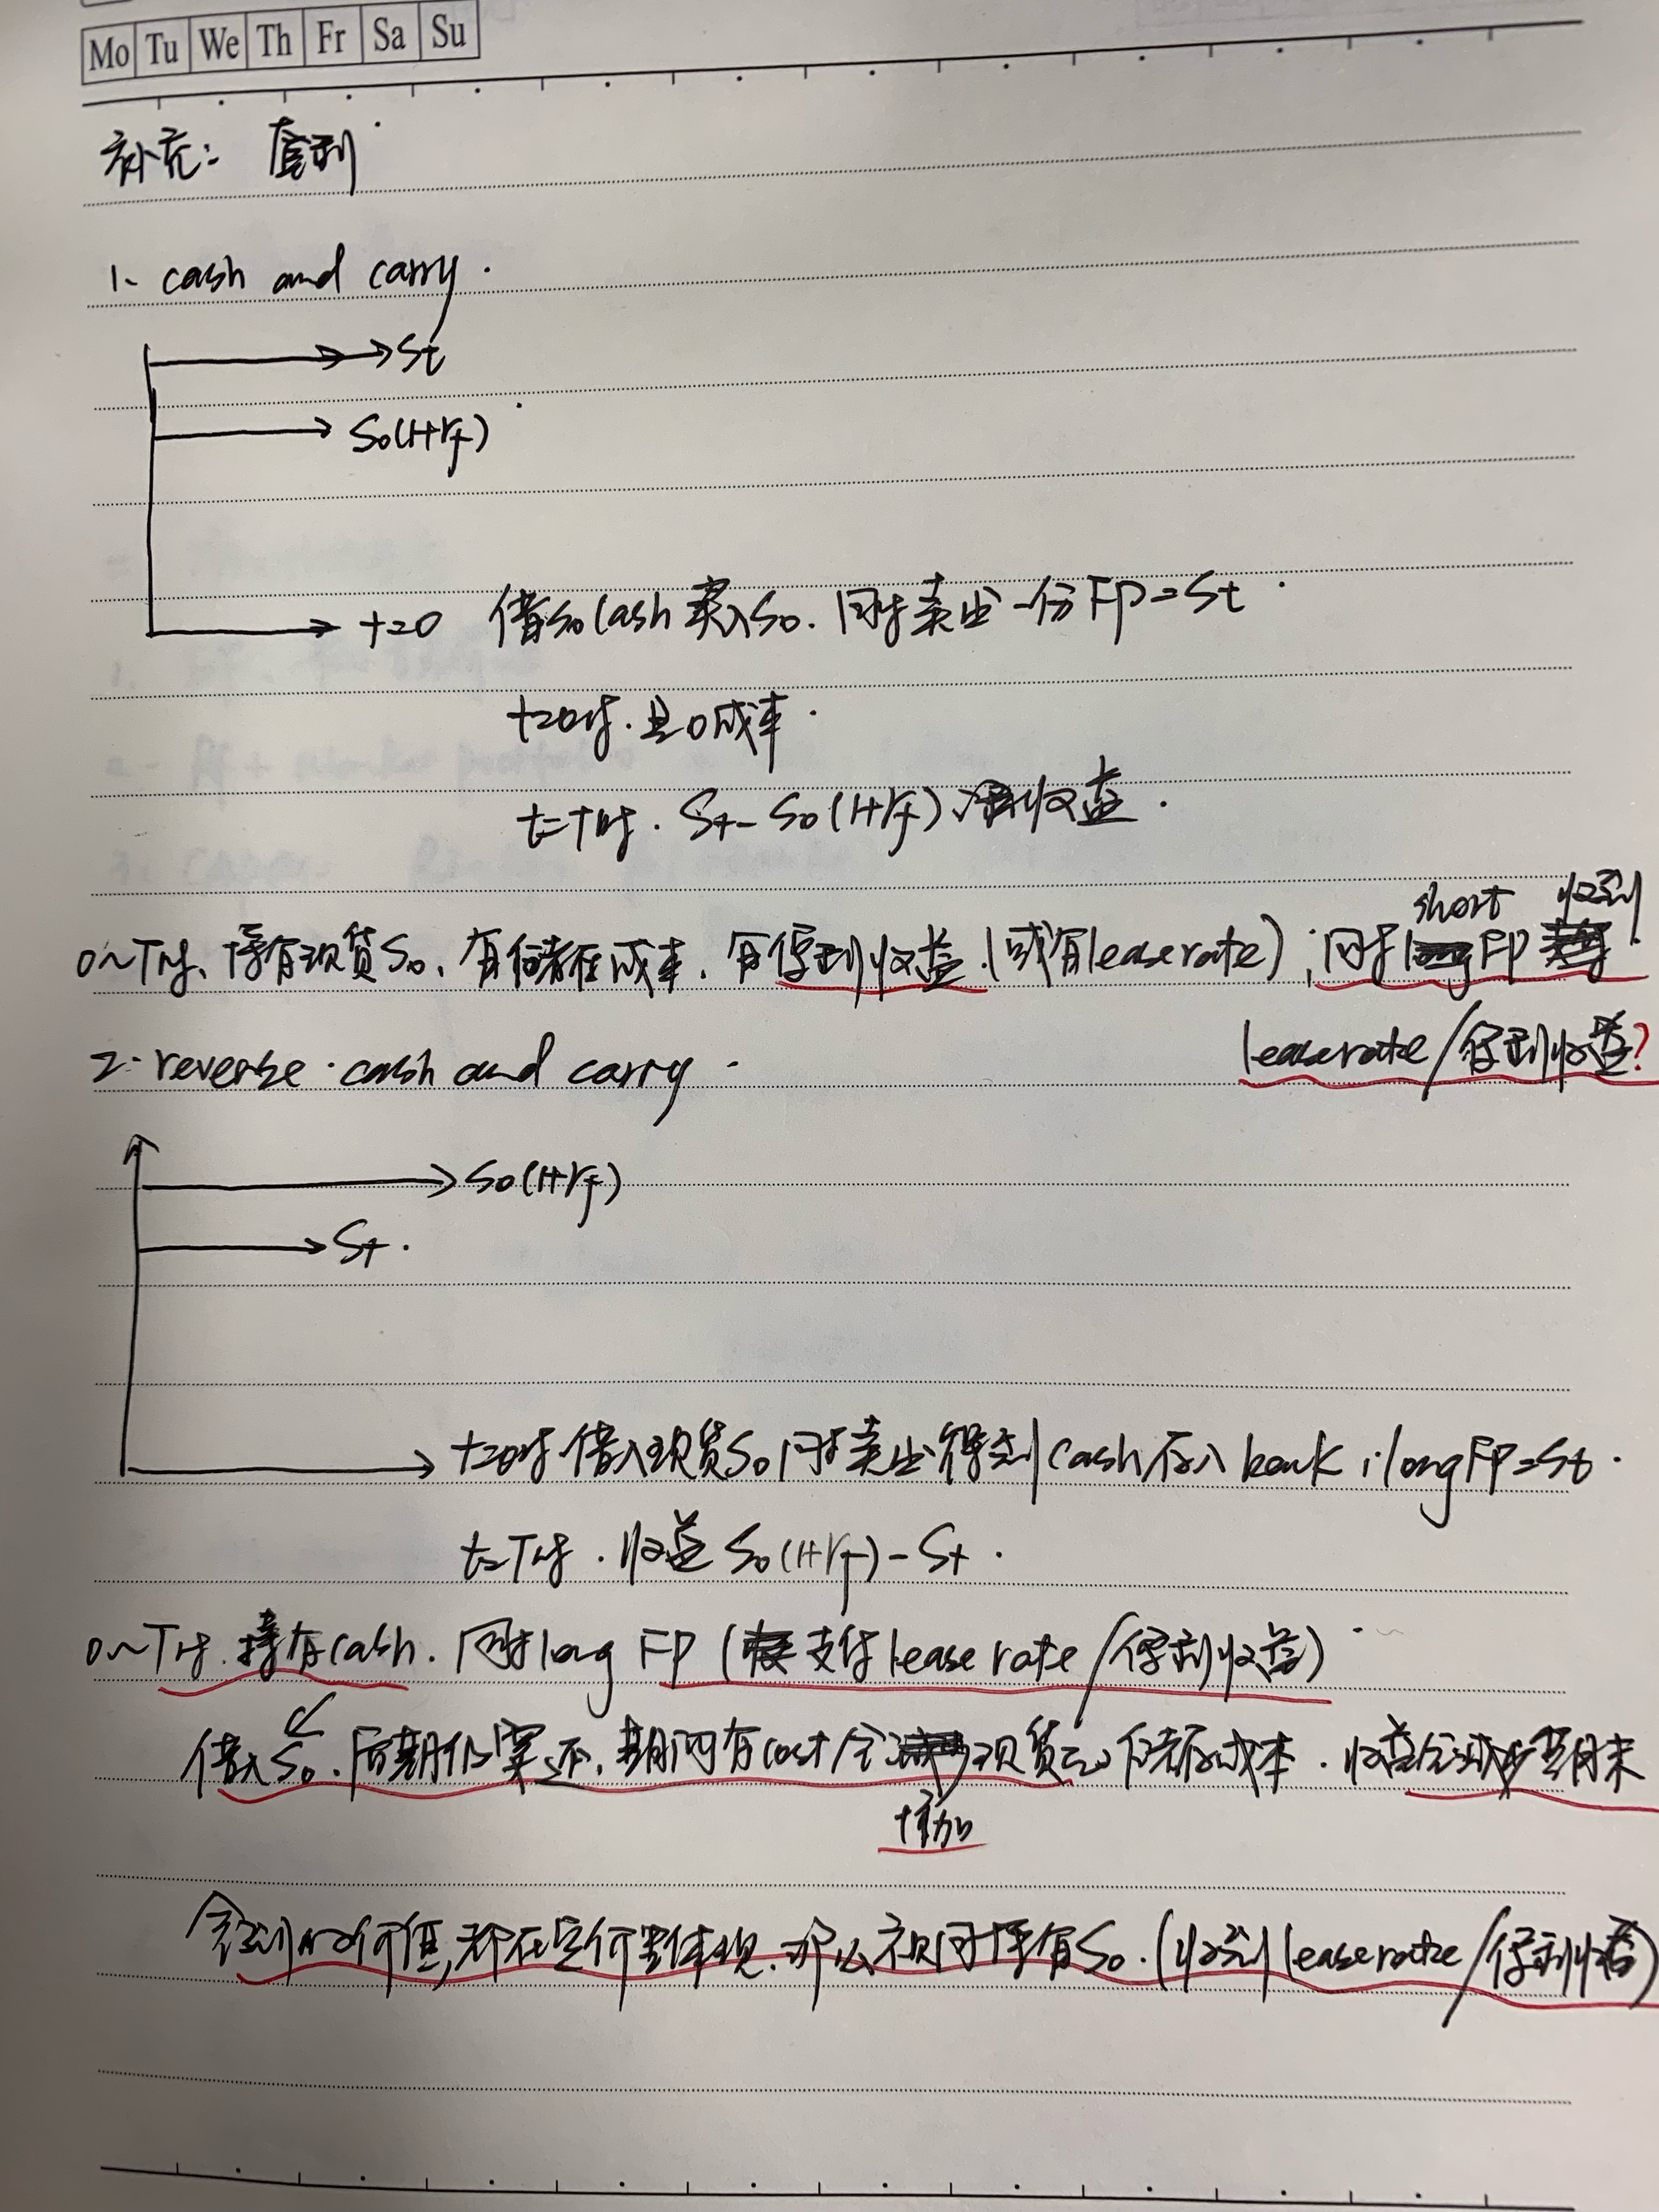 Mo Tu We Th Fr Sa Su
补充: 套利
1. cash and carry.
St
S0(1+rf)
t=0 借S0 cash 买入S0. 同时卖出一份FP=St
t=0时. 是0成本.
t=T时. St-S0(1+rf) 收益.
short 收到
0~T时、持有现货S0、有储存在成本. 有便利收益.(或有lease rate); 同时 FP
2. reverse cash and carry.
lease rate/便利收益?
S0(1+rf)
St.
t=0时借入现货S0同时卖出得到cash存入bank;long FP=St.
t=T时. 收益S0(1+rf)-St.
0~T时. 持有cash. 同时long FP (支付lease rate/便利收益)
借入S0. 后期仍要还, 期间有cost/会 现货的储存成本. 收益会减少至期末
增加
价值,都在定价里体现. 那么视同持有S0.(收到lease rate/便利收益)